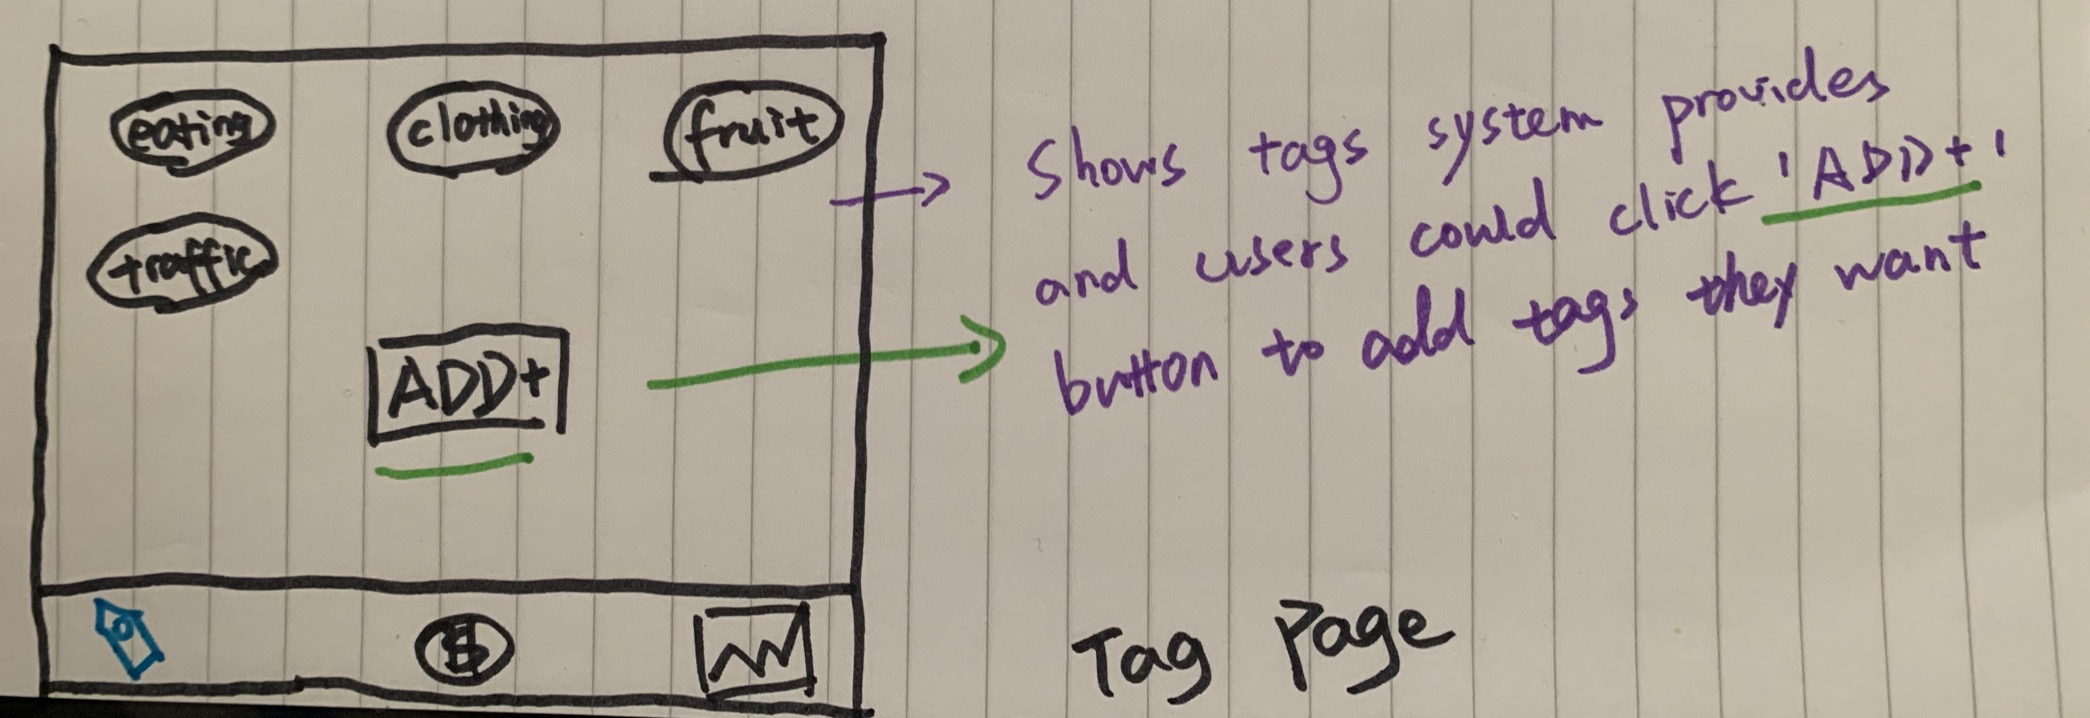 eating clothing fruit
traffic
ADD+
$
Shows tags system provides
and users could click 'ADD+'
button to add tags they want
Tag Page